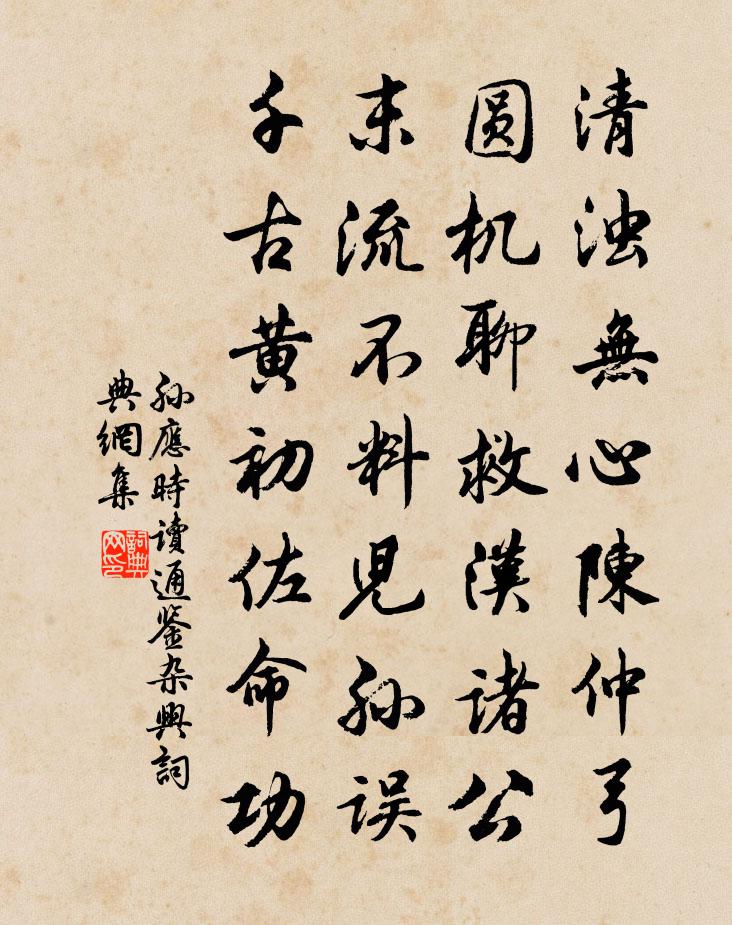 清浊無心陳仲弓
圆机聊救漢诸公
末流不料児孫误
千古黄初佐命功
孫應時讀通鉴杂興詞
典網集
詞典
网印